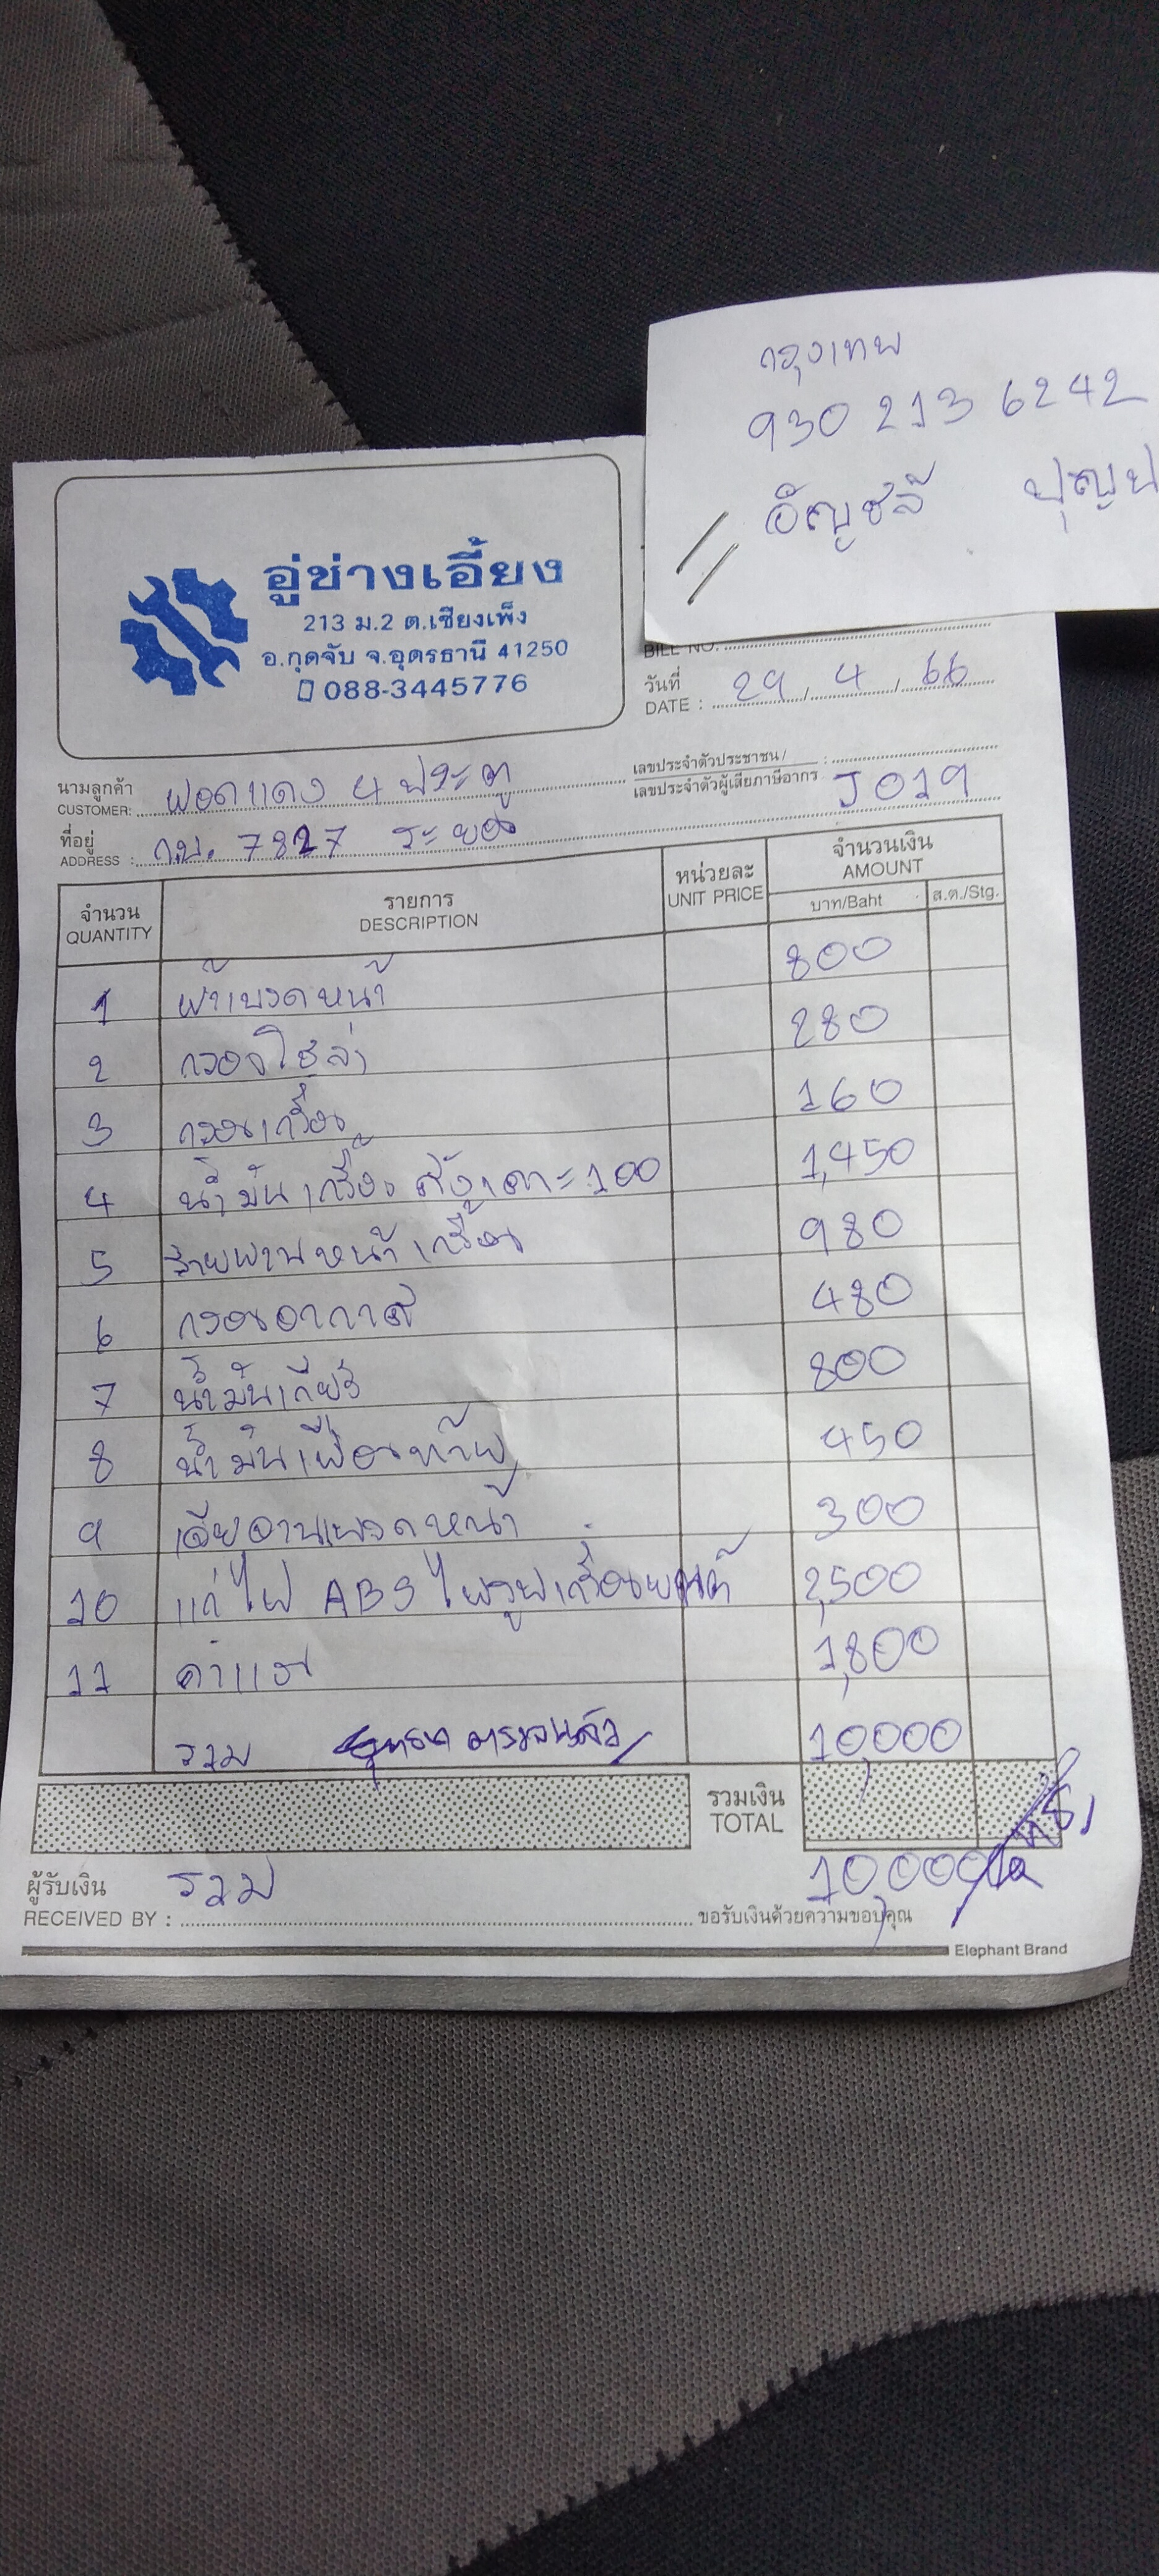 กรุงเทพ
930 213 6242
อัญชลี
อู่ช่างเอี้ยง
213 ม.2 ต.เชียงเพ็ง
อ.กุดจับ จ.อุดรธานี 41250
088-3445776
BILL NO.
วันที่ DATE : 29 / 4 / 66
นามลูกค้า CUSTOMER: ฟอดแดง 4 ประตู
เลขประจำตัวประชาชน / เลขประจำตัวผู้เสียภาษีอากร : J019
ที่อยู่ ADDRESS : กบ. 7827 ระยอง
จำนวน QUANTITY รายการ DESCRIPTION หน่วยละ UNIT PRICE จำนวนเงิน AMOUNT
บาท/Baht ส.ต./Stg.
1 ผ้าเบรดหน้า 800
2 กรองโซล่า 280
3 กรองเครื่อง 160
4 น้ำมันเครื่อง สังเคาะ 100 1,450
5 สายพานหน้าเครื่อง 980
6 กรองอากาศ 480
7 น้ำมันเกียร์ 800
8 น้ำมันเฟืองท้าย 450
9 เจียจานเบรดหน้า 300
10 แก้ไฟ ABS ไฟรูปเครื่องยนต์ 2,500
11 ค่าแรง 1,800
รวม ตรวจแล้ว 10,000
รวมเงิน TOTAL
10,000
ผู้รับเงิน RECEIVED BY : รวม
ขอรับเงินด้วยความขอบคุณ
Elephant Brand